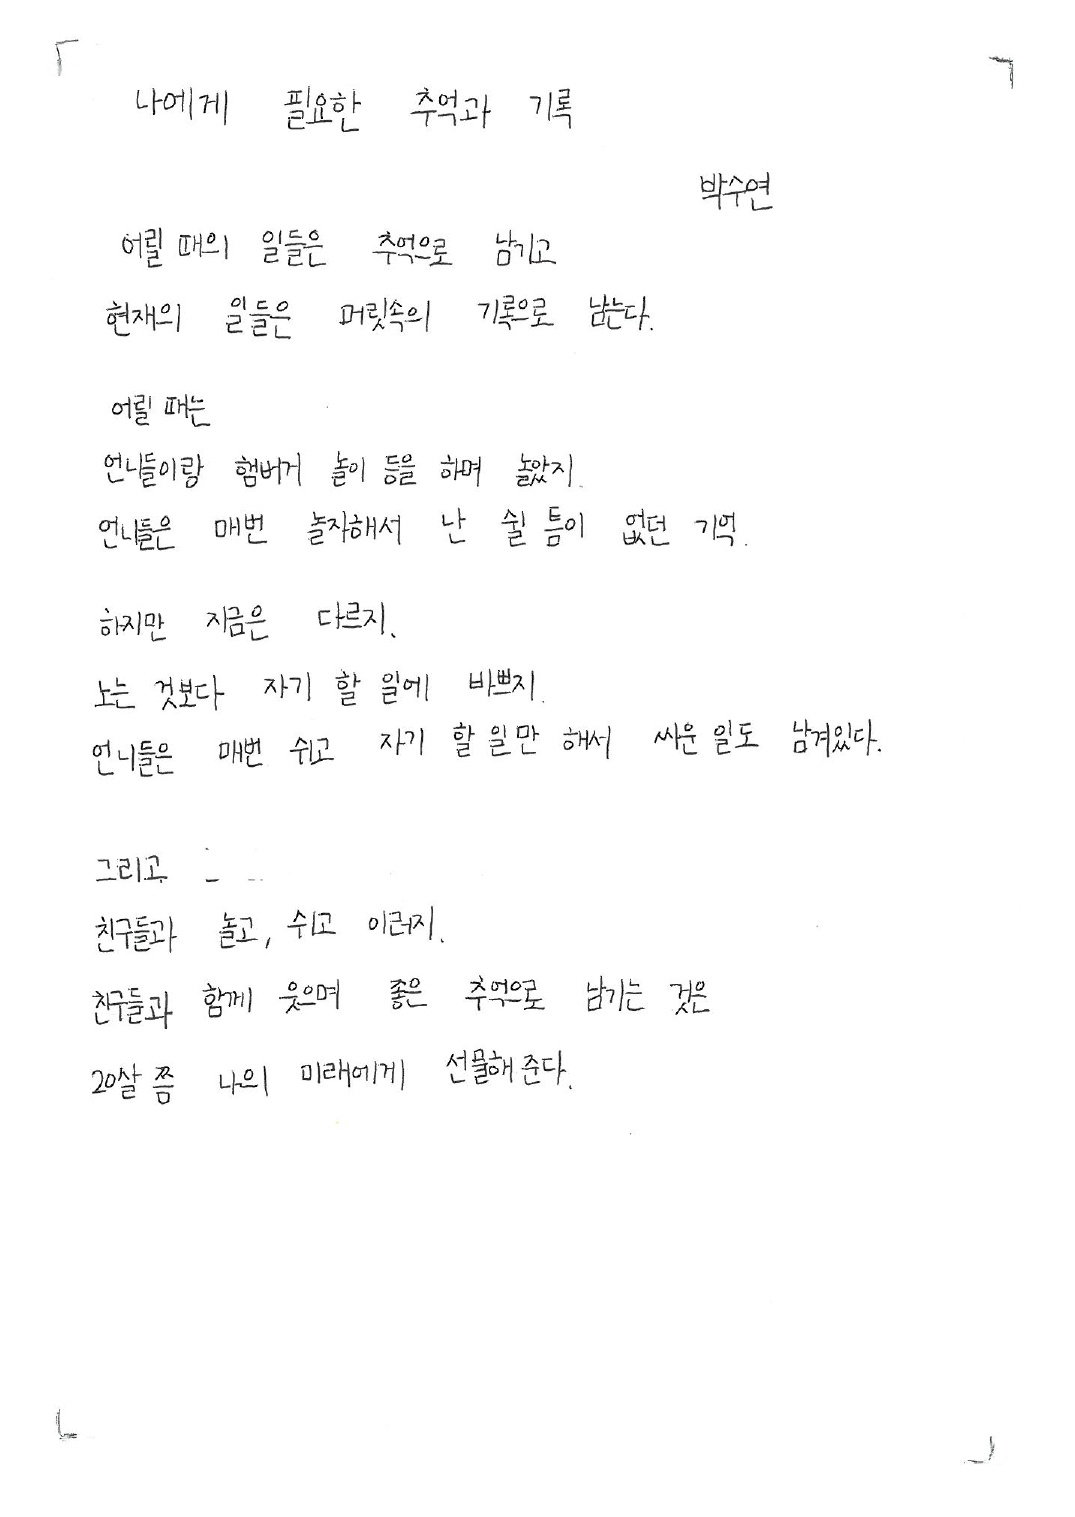 나에게 필요한 추억과 기록
박수연
어릴 때의 일들은 추억으로 남기고
현재의 일들은 머릿속의 기록으로 남는다.
어릴 때는
언니들이랑 햄버거 놀이 등을 하며 놀았지.
언니들은 매번 놀자해서 난 쉴 틈이 없던 기억.
하지만 지금은 다르지.
노는 것보다 자기 할 일에 바쁘지.
언니들은 매번 쉬고 자기 할 일만 해서 싸운 일도 남겨있다.
그리고
친구들과 놀고, 쉬고 이러지.
친구들과 함께 웃으며 좋은 추억으로 남기는 것은
20살 쯤 나의 미래에게 선물해 준다.